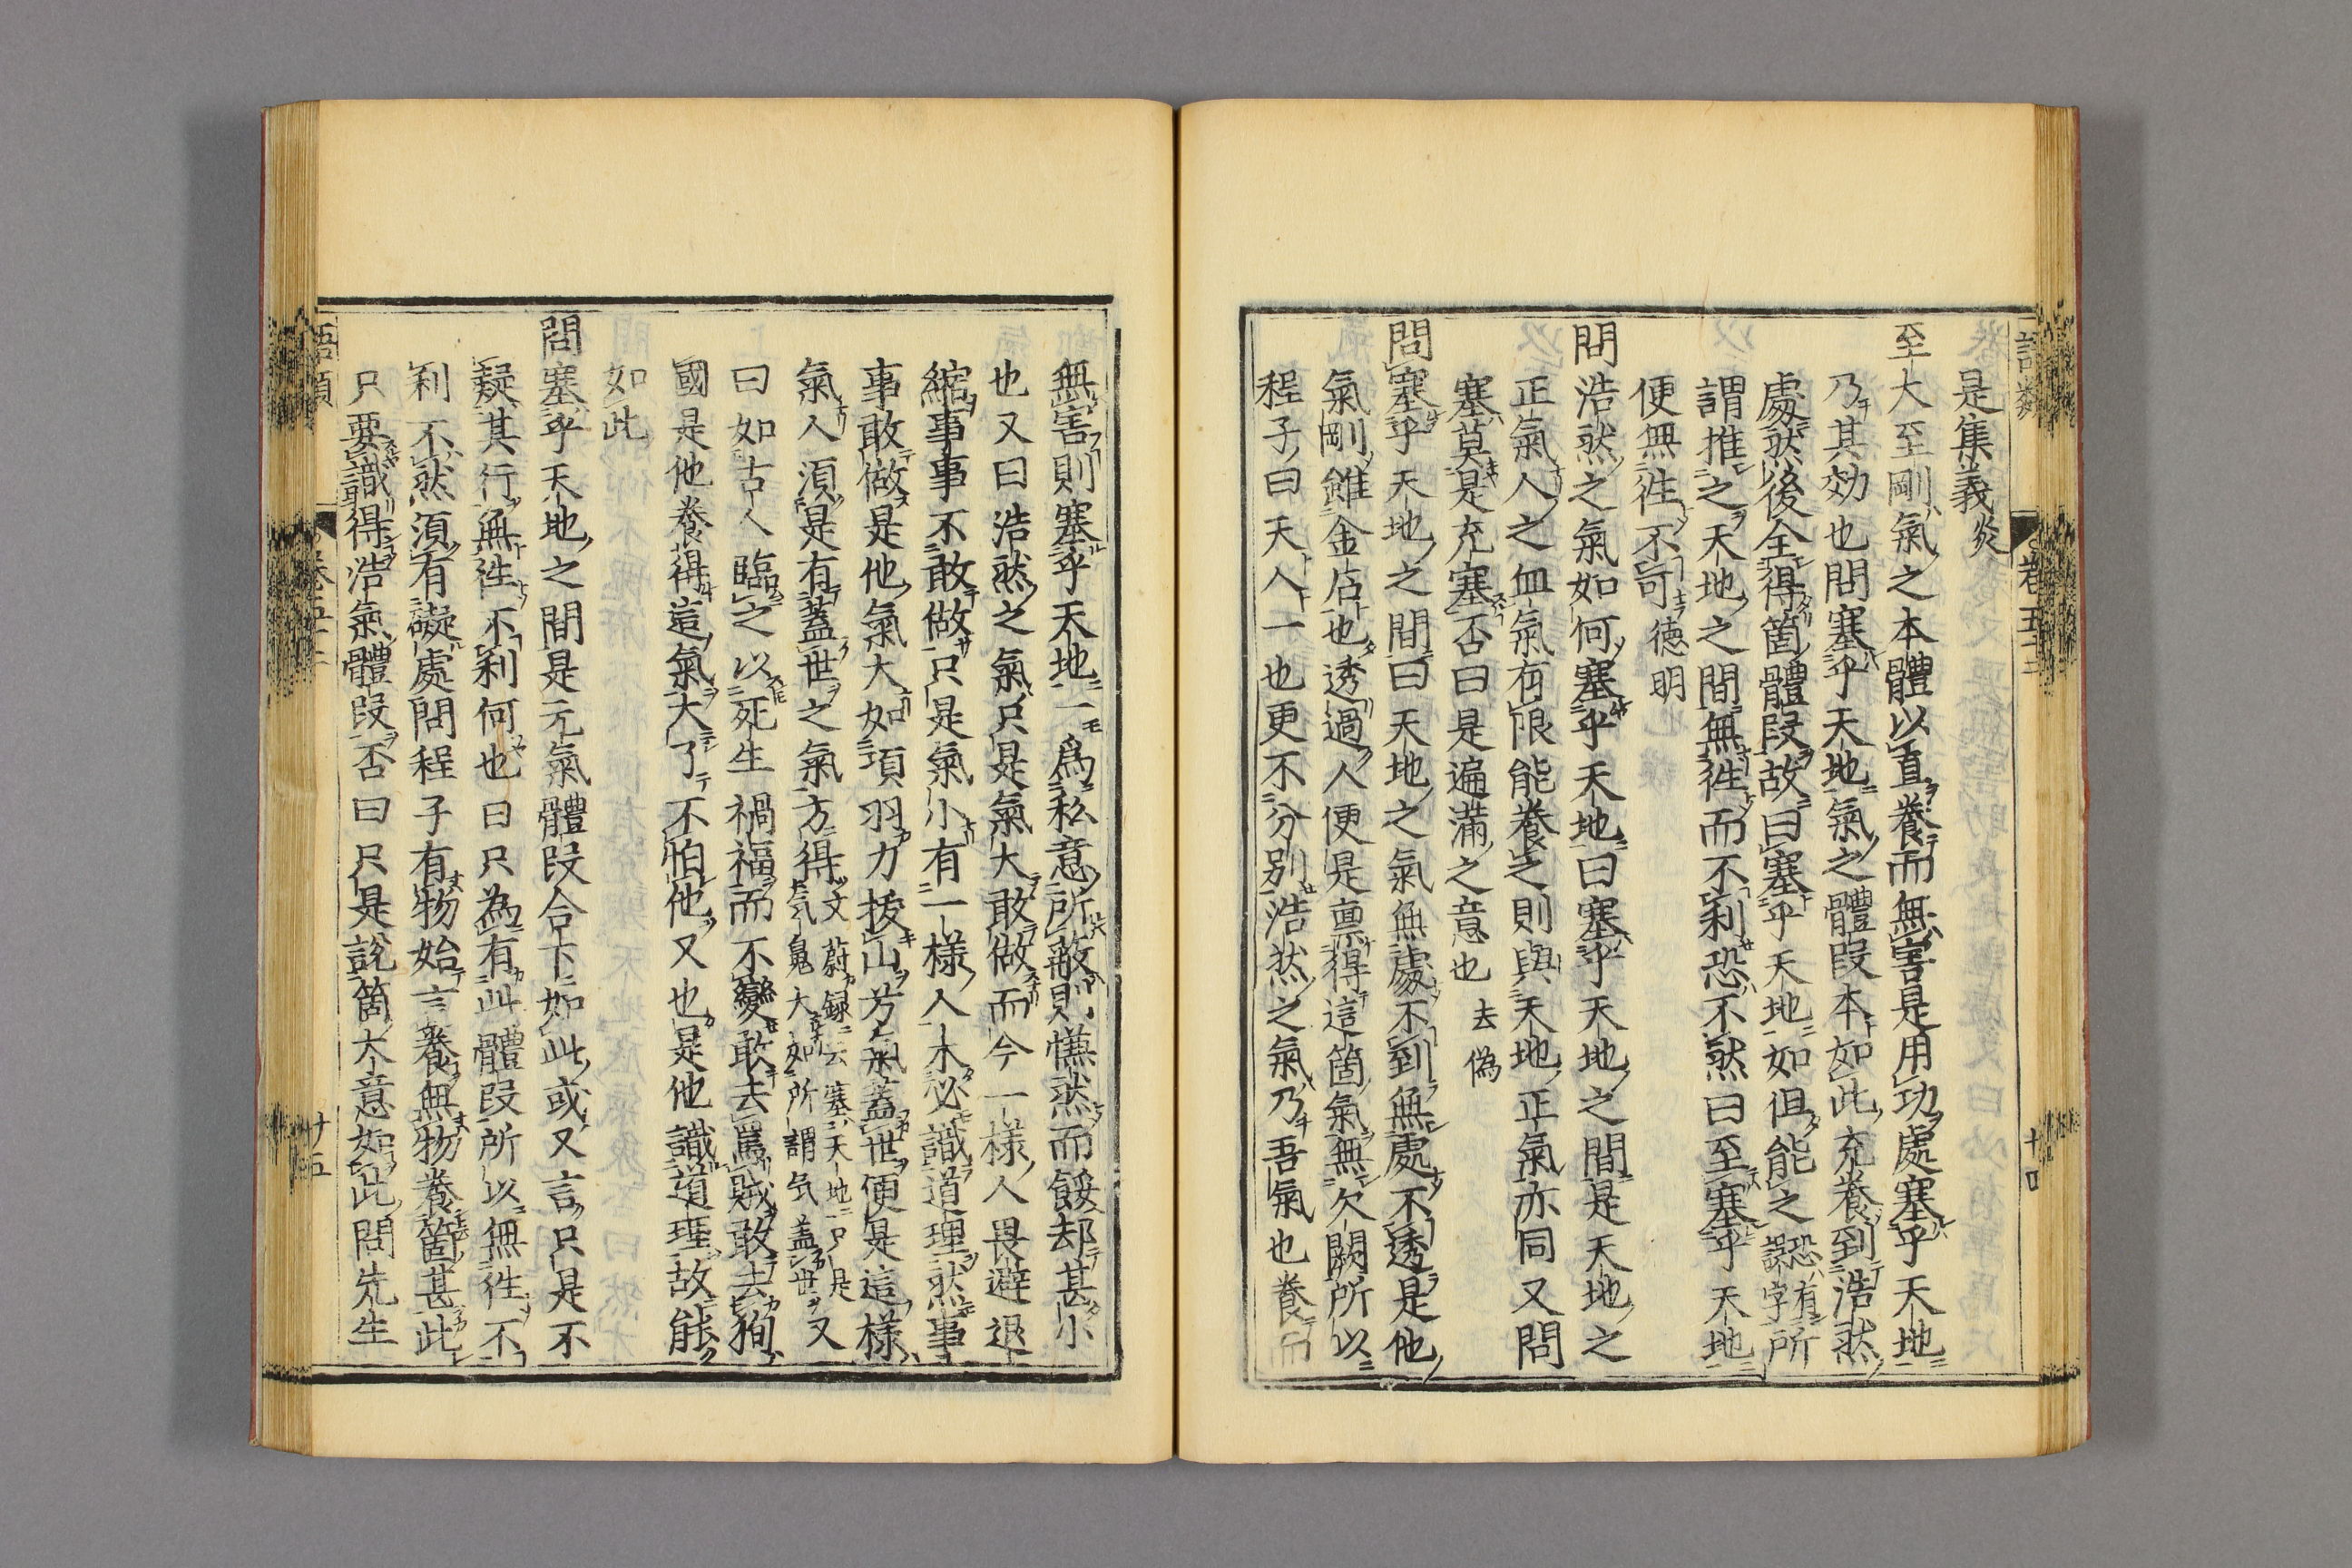 語類 卷五十二 十四
是集義炎
至大至剛氣之本體以直養而無害是用功處塞乎天地
乃其効也問塞乎天地氣之體段本如此充養到浩然
處然後全得箇體段故曰塞乎天地如但能之恐有誤字所
謂推之天地之間無徃而不利恐不然曰至塞乎天地
便無徃不可德明
問浩然之氣如何塞乎天地曰塞乎天地之間是天地之
正氣人之血氣有限能養之則與天地正氣亦同又問
塞莫是充塞否曰是遍滿之意也去偽
問塞乎天地之間曰天地之氣無處不到無處不透是他
氣剛雖金石也透過人便是禀得這箇氣無欠闕所以
程子曰天人一也更不分别浩然之氣乃吾氣也養而
無害則塞乎天地一爲私意所蔽則慊然而餒却甚小
也又曰浩然之氣只是氣大敢做而今一樣人畏避退
縮事事不敢做只是氣小有一樣人未必識道理然事
事敢做是他氣大如項羽力拔山兮氣蓋世便是這樣
氣人須是有蓋世之氣方得文蔚録云塞天地只是氣魄大如所謂气盖世又
曰如古人臨之以死生禍福而不變敢去罵賊敢去徇
國是他養得這氣大了不怕他又也是他識道理故能
如此
問塞乎天地之間是元氣體段合下如此或又言只是不
疑其行無徃不利何也曰只為有此體段所以無徃不
利不然須有礙處問程子有物始言養無物養箇甚此
只要識得浩氣體段否曰只是說箇大意如此問先生
語類 卷五十二 十五